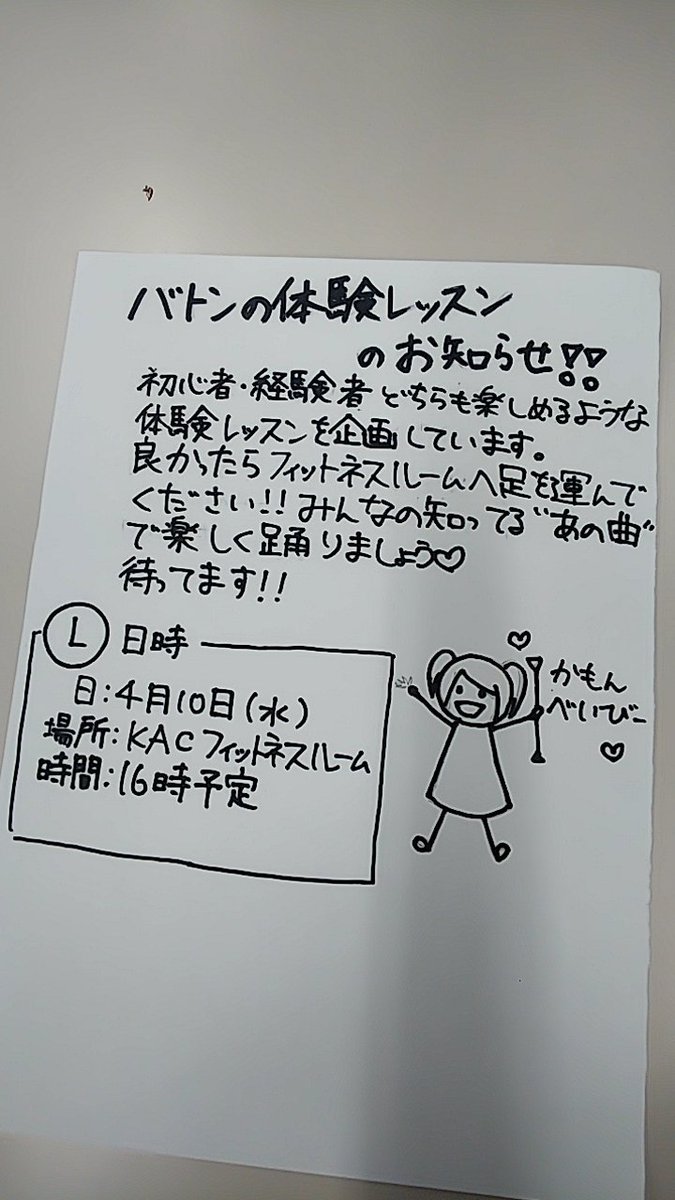 バトンの体験レッスン
のお知らせ!!
初心者・経験者 どちらも楽しめるような
体験レッスンを企画しています。
良かったらフィットネスルームへ足を運んで
ください!! みんなの知ってる"あの曲"
で楽しく踊りましょう♡
待ってます!!
L 日時
日:4月10日(水)
場所:KACフィットネスルーム
時間:16時予定
かもん
べいびー